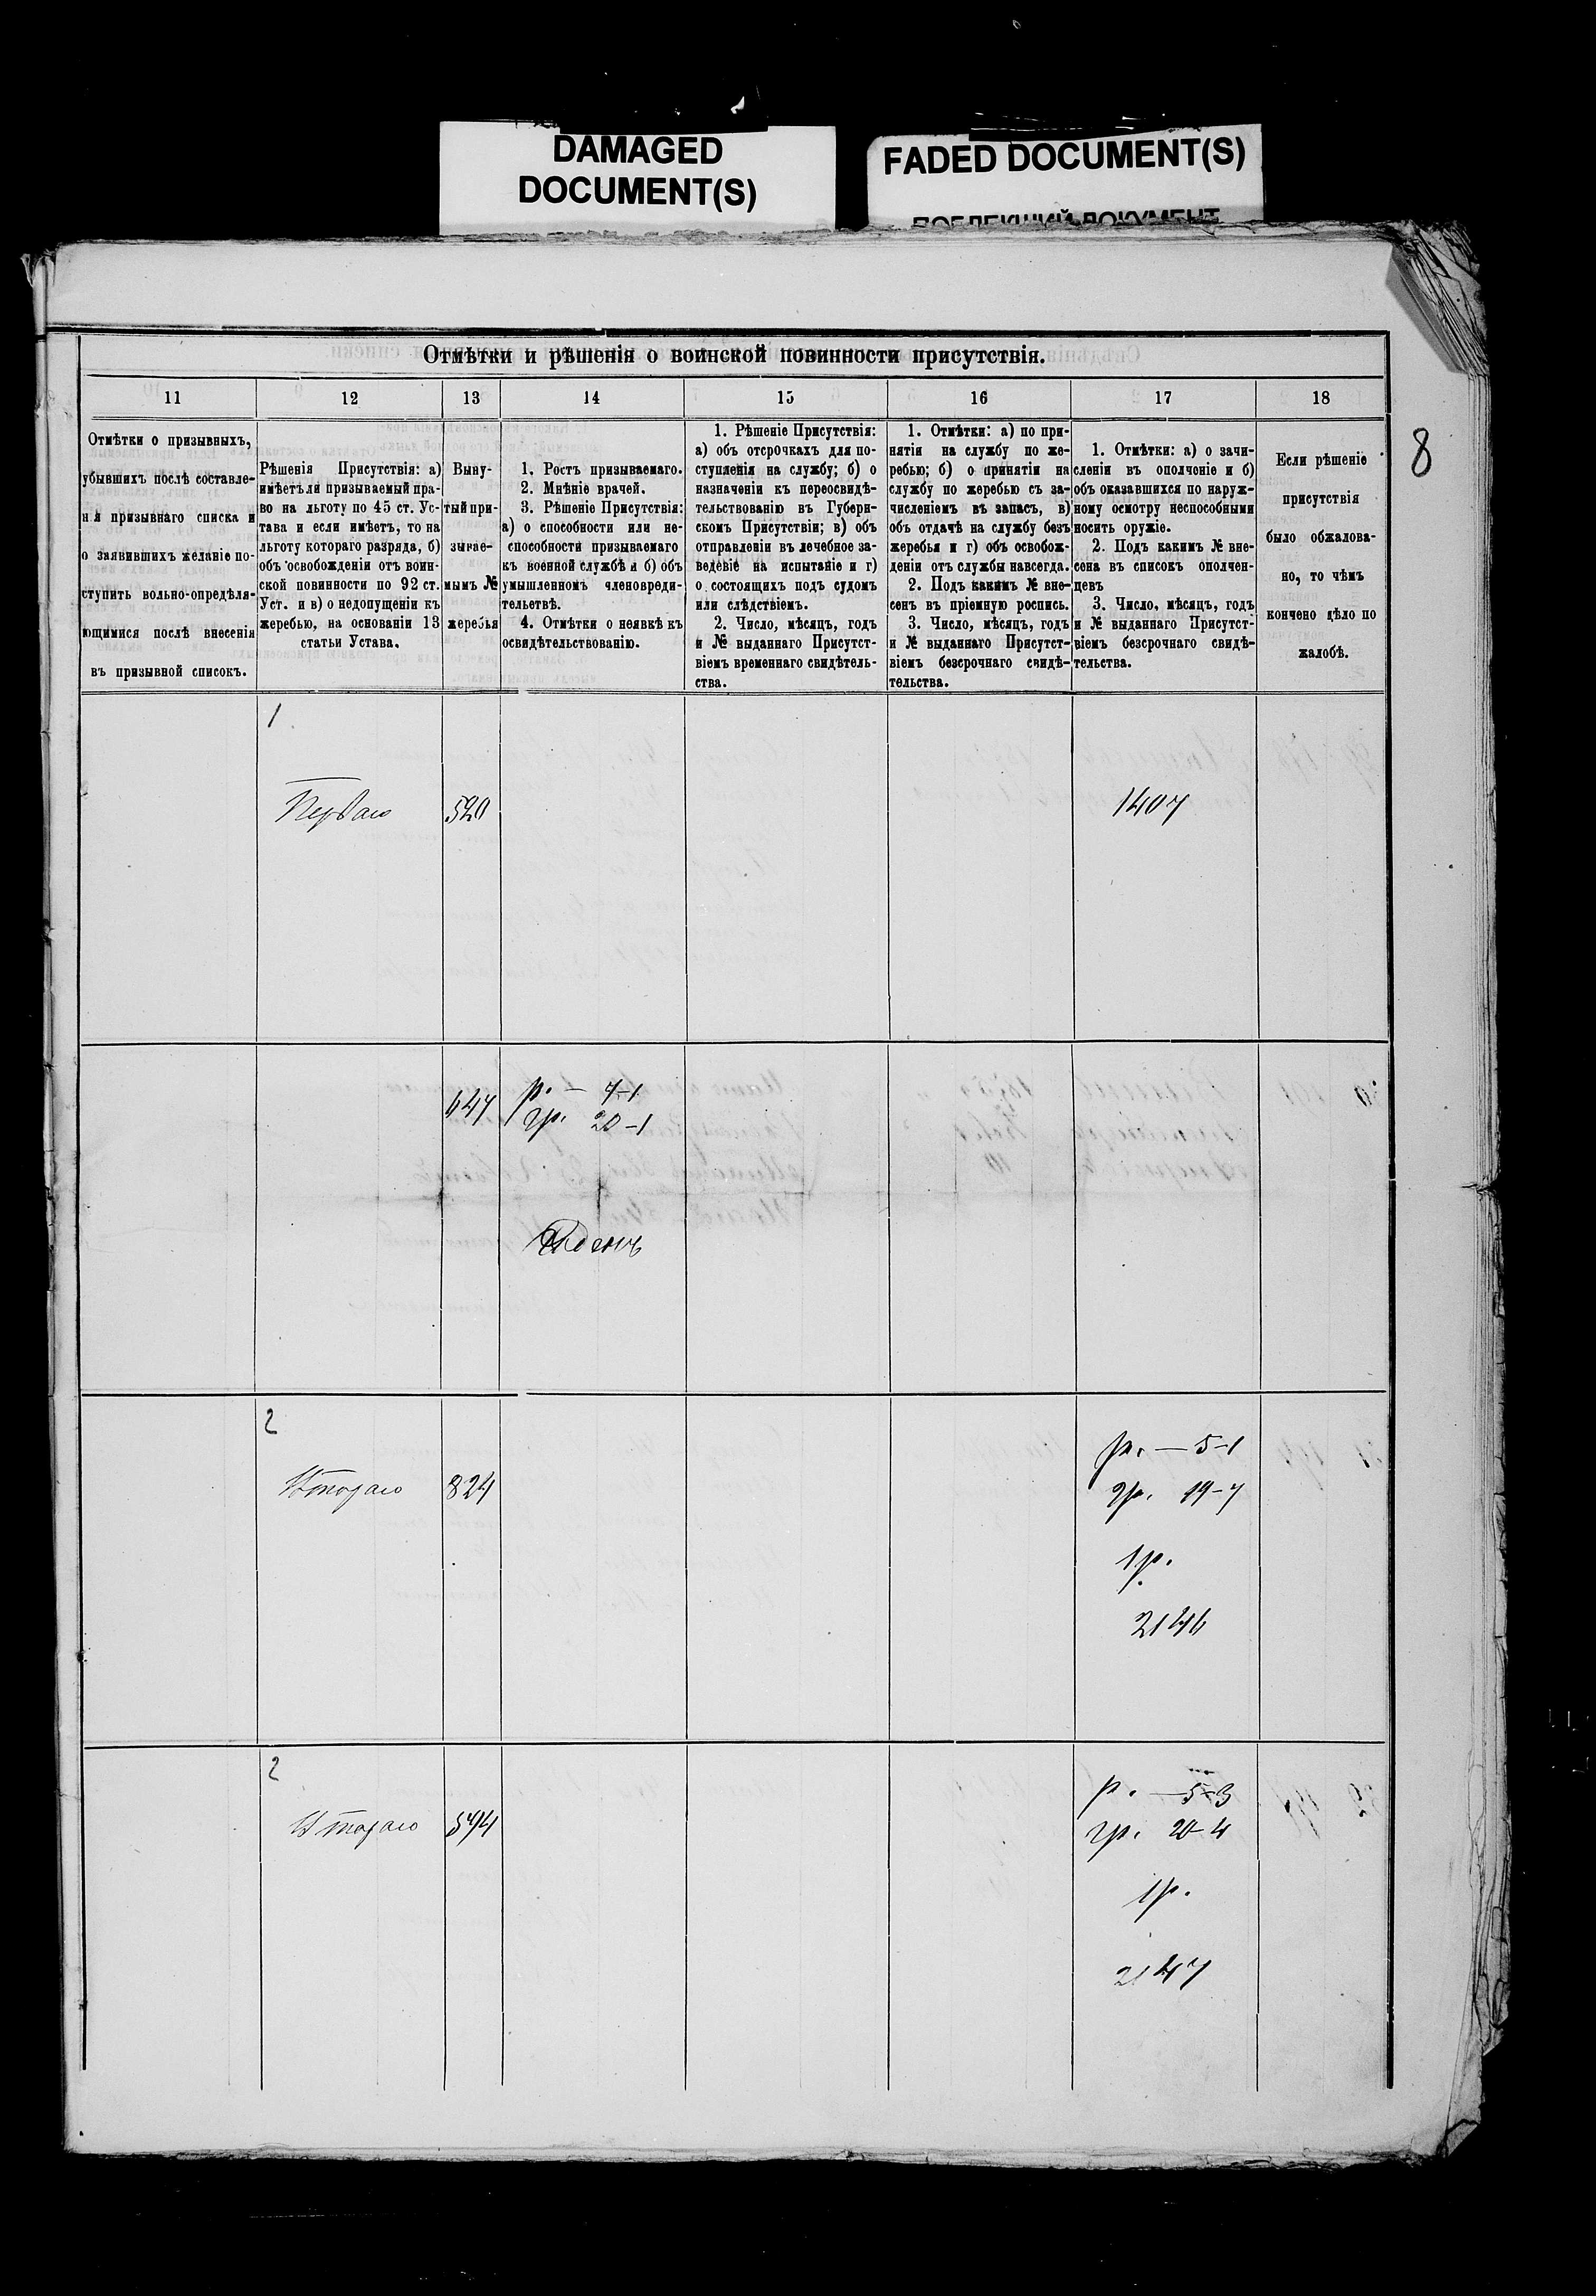 DAMAGED
DOCUMENT(S)
FADED DOCUMENT(S)
ПОБЛЕКШИЙ ДОКУМЕНТ
8
Отмѣтки и рѣшенія о воинской повинности присутствія.
11
12
13
14
15
16
17
18
Отмѣтки о призывныхъ,
убывшихъ послѣ составле-
нія призывнаго списка и
о заявившихъ желаніе по-
ступить вольно-опредѣля-
ющимися послѣ внесенія
въ призывной списокъ.
Рѣшенія Присутствія: а)
имѣетъ ли призываемый пра-
во на льготу по 45 ст. Ус-
тава и если имѣетъ, то на
льготу котораго разряда, б)
объ освобожденіи отъ воин-
ской повинности по 92 ст.
Уст. и в) о недопущеніи къ
жеребью, на основаніи 13
статьи Устава.
Выну-
тый при-
зывае-
мымъ №
жеребья
1. Ростъ призываемаго.
2. Мнѣніе врачей.
3. Рѣшеніе Присутствія:
а) о способности или не-
способности призываемаго
къ военной службѣ и б) объ
умышленномъ членовреди-
тельствѣ.
4. Отмѣтки о неявкѣ къ
освидѣтельствованію.
1. Рѣшеніе Присутствія:
а) объ отсрочкахъ для по-
ступленія на службу; б) о
назначеніи къ переосвидѣ-
тельствованію въ Губерн-
скомъ Присутствіи; в) объ
отправленіи въ лечебное за-
веденіе на испытаніе и г)
о состоящихъ подъ судомъ
или слѣдствіемъ.
2. Число, мѣсяцъ, годъ
и № выданнаго Присутст-
віемъ временнаго свидѣтель-
ства.
1. Отмѣтки: а) по при-
нятіи на службу по же-
ребью; б) о принятіи на
службу по жеребью съ за-
численіемъ въ запасъ, в)
объ отдачѣ на службу безъ
жеребья и г) объ освобож-
деніи отъ службы навсегда.
2. Подъ какимъ № вне-
сенъ въ пріемную роспись.
3. Число, мѣсяцъ, годъ
и № выданнаго Присутст-
віемъ безсрочнаго свидѣ-
тельства.
1. Отмѣтки: а) о зачи-
сленіи въ ополченіе и б)
объ оказавшихся по наруж-
ному осмотру неспособными
носить оружіе.
2. Подъ какимъ № вне-
сена въ списокъ ополчен-
цевъ
3. Число, мѣсяцъ, годъ
и № выданнаго Присутст-
віемъ безсрочнаго свидѣ-
тельства.
Если рѣшеніе
присутствія
было обжалова-
но, то чѣмъ
кончено дѣло по
жалобѣ.
1
Перваго
520
1407
647
р. — 7-1
гр. 20-1
Годенъ
2
Втораго
824
р. — 5-1
гр. 19-7
1р.
2146
2
Втораго
544
р. — 5-3
гр. 20-4
1р.
2147